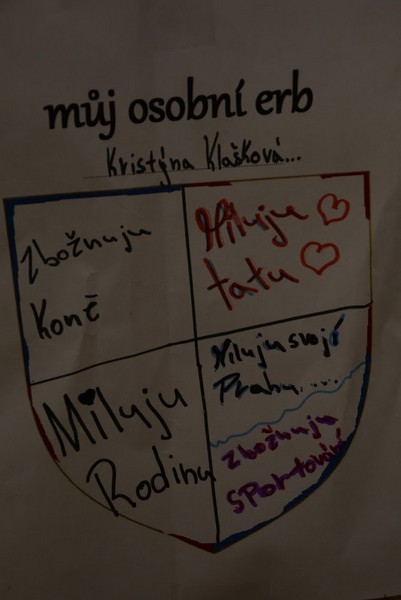 můj osobní erb
Kristýna Klašková...
Zbožnuju
Koně
Miluju
tatu
Miluju svojí
Prahu.....
Miluju
Rodinu
Zbožnuju
sportování